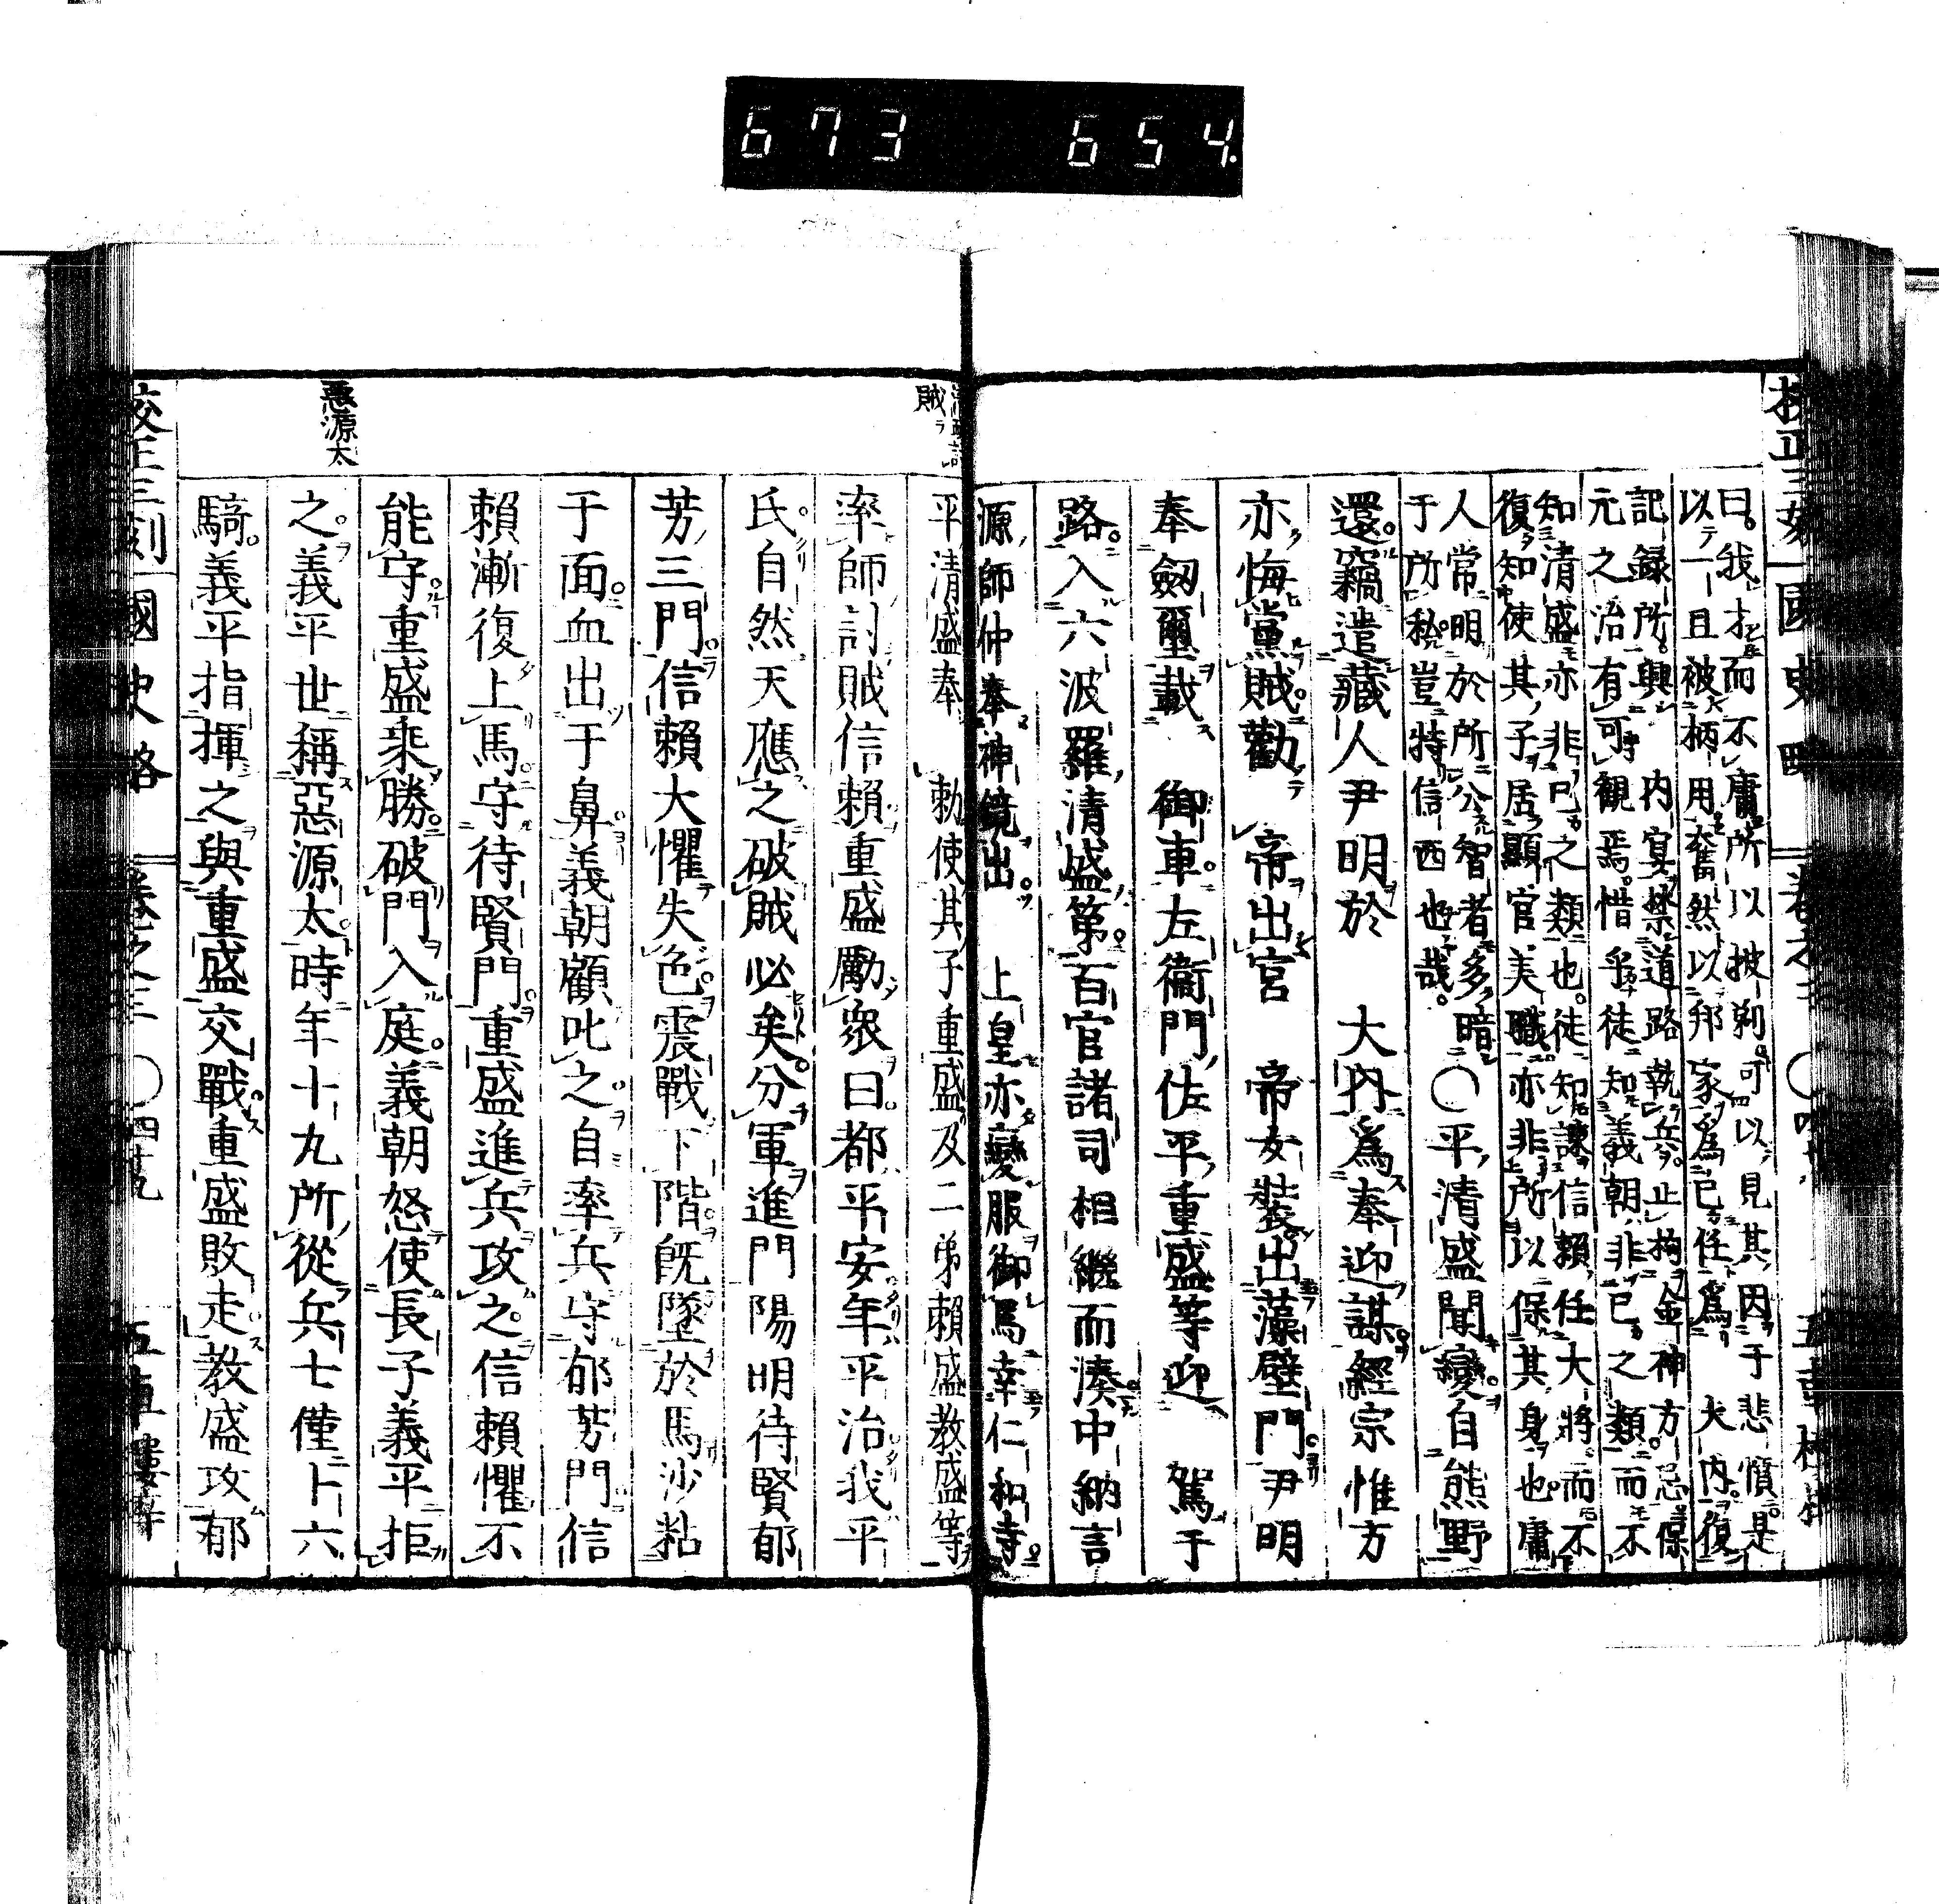 673 654.
國史略
曰我才而不庸所以披剃可以見其因于悲憤是
以一旦被柄用奮然以邦家為己任為 大内復
記録所興 内宴禁道路執兵止拘金神方忌保
元之治有可観焉惜乎徒知義朝非已之類而不
知清盛亦非已之類也徒知諫信頼任大將而不
復知使其子居顯官美職亦非所以保其身也庸
人常明於所公智者多暗
于所私豈特信西也哉
〇平清盛聞變自熊野
還竊遣藏人尹明於 大内為奉迎謀經宗惟方
亦悔黨賊勸 帝出宮 帝女裝出藻壁門尹明
奉劔璽載 御車左衞門佐平重盛等迎 駕于
路入六波羅清盛第百官諸司相繼而湊中納言
源師仲奉神鏡出 上皇亦變服御馬幸仁和寺
賊ヲ
平清盛奉 勅使其子重盛及二弟賴盛教盛等
率師討賊信賴重盛勵衆曰都平安年平治我平
氏自然天應之破賊必矣分軍進門陽明待賢郁
芳三門信賴大懼失色震戰下階既墜於馬沙粘
于面血出于鼻義朝顧叱之自率兵守郁芳門信
賴漸復上馬守待賢門重盛進兵攻之信賴懼不
能守重盛乘勝破門入庭義朝怒使長子義平拒
惡源太
之義平世稱惡源太時年十九所從兵士僅十六
騎義平指揮之與重盛交戰重盛敗走教盛攻郁
校正三刻 國史略 卷之三 〇四十九 五車樓梓